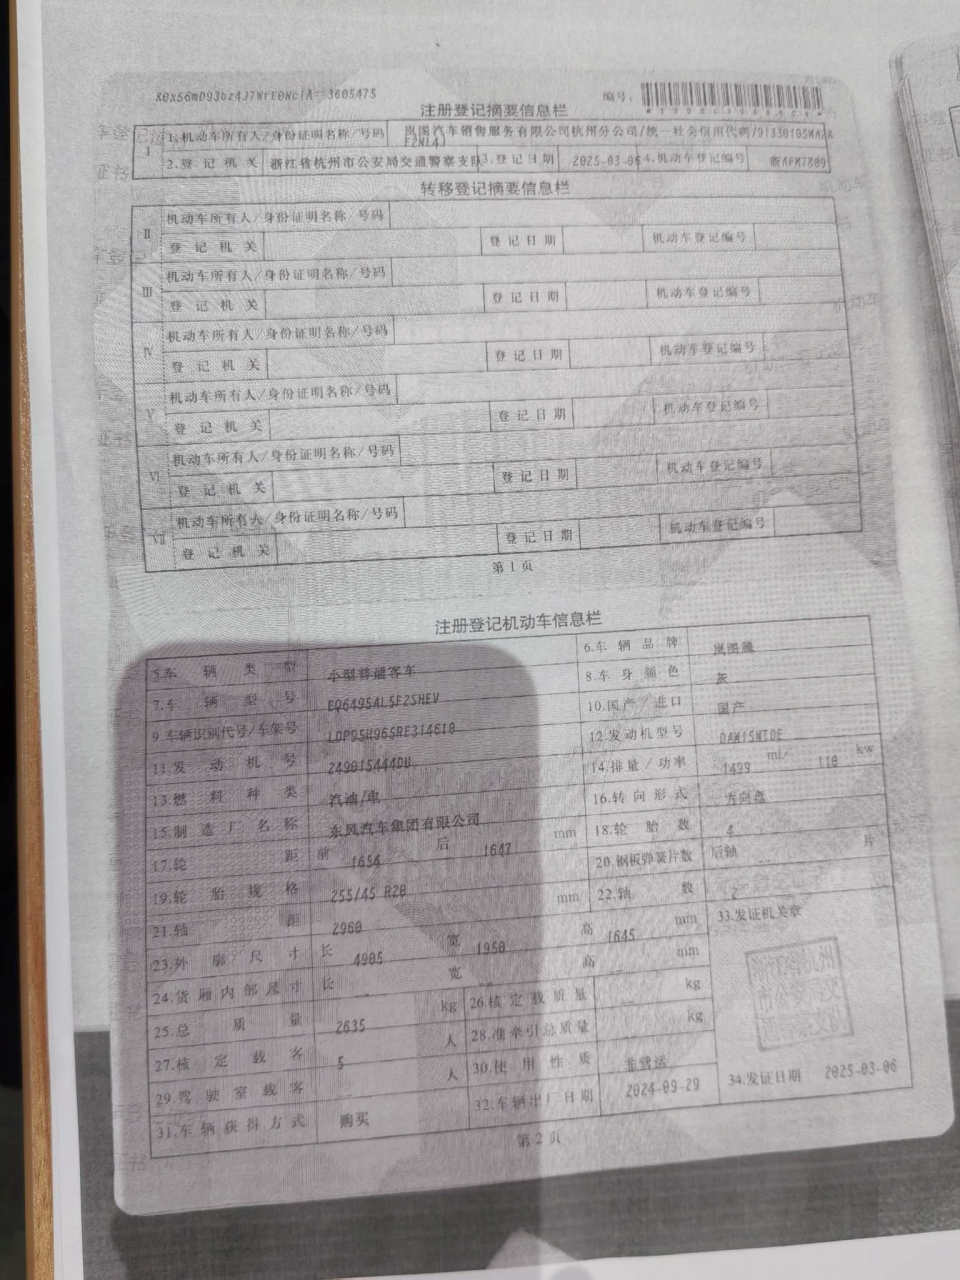 编号:
注册登记摘要信息栏
Ⅰ 1.机动车所有人/身份证明名称/号码 岚图汽车销售服务有限公司杭州分公司/统一社会信用代码/
2.登记机关 浙江省杭州市公安局交通警察支队 3.登记日期 2025-03-06 4.机动车登记编号
转移登记摘要信息栏
Ⅱ 机动车所有人/身份证明名称/号码
登记机关 登记日期 机动车登记编号
Ⅲ 机动车所有人/身份证明名称/号码
登记机关 登记日期 机动车登记编号
Ⅳ 机动车所有人/身份证明名称/号码
登记机关 登记日期 机动车登记编号
Ⅴ 机动车所有人/身份证明名称/号码
登记机关 登记日期 机动车登记编号
Ⅵ 机动车所有人/身份证明名称/号码
登记机关 登记日期 机动车登记编号
Ⅶ 机动车所有人/身份证明名称/号码
登记机关 登记日期 机动车登记编号
第1页
注册登记机动车信息栏
5.车辆类型 小型普通客车 6.车辆品牌 岚图牌
7.车辆型号 8.车身颜色 灰
9.车辆识别代号/车架号 10.国产/进口 国产
11.发动机号 12.发动机型号 DAM15NTDE
13.燃料种类 汽油/电 14.排量/功率 1499 ml/ 110 kw
15.制造厂名称 东风汽车集团有限公司 16.转向形式 方向盘
17.轮距 前 1654 后 1647 mm 18.轮胎数 4
19.轮胎规格 255/45 R20 20.钢板弹簧片数 后轴 -- 片
21.轴距 2960 mm 22.轴数 2
23.外廓尺寸 长 4905 宽 1950 高 1645 mm 33.发证机关章
24.货厢内部尺寸 长 宽 高 mm
25.总质量 2635 kg 26.核定载质量 kg
27.核定载客 5 人 28.准牵引总质量 kg
29.驾驶室载客 人 30.使用性质 非营运
31.车辆获得方式 购买 32.车辆出厂日期 2024-09-29 34.发证日期 2025-03-06
第2页